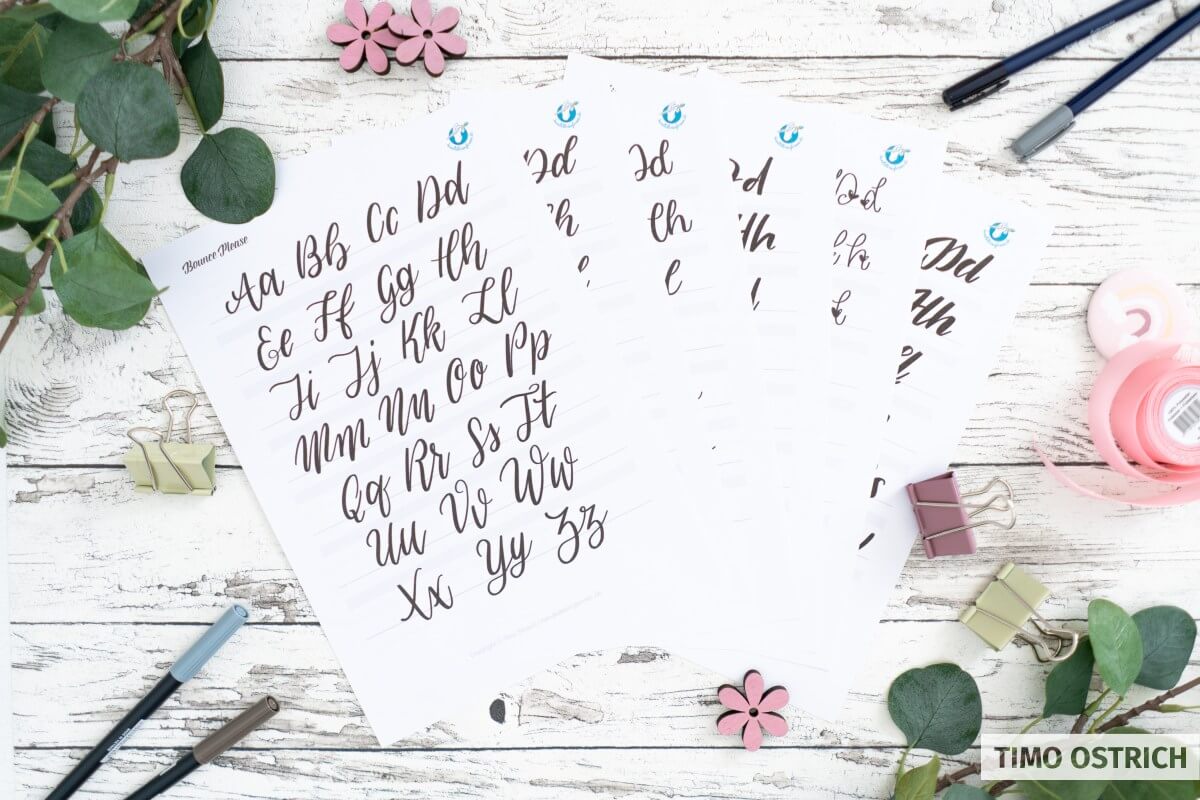 Bounce Please
Aa Bb Cc Dd
Ee Ff Gg Hh
Ii Jj Kk Ll
Mm Nn Oo Pp
Qq Rr Ss Tt
Uu Vv Ww
Xx Yy Zz
d
h
d
h
l
d
Hh
l
Dd
h
Dd
Hh
TIMO OSTRICH